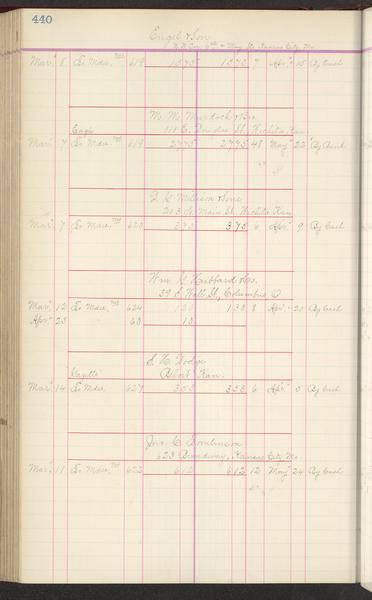 440
Engel & Son
N.W. Cor. 6th & May St. Kansas City Mo
Mar. 8 To Mdse. 619 1575 1575 7 Apr. 15 By Cash
M. M. Murdock & Bro
Eagle 111 E. Douglas St. Wichita, Kan.
Mar. 7 To Mdse. 619 2775 2775 48 May 22 By Cash
& Sons
213 N. Main St. Wichita, Kan
Mar. 7 To Mdse. 620 375 375 6 Apr. 9 By Cash
Wm. G. Hubbard & Co.
59 S. Wall St., Columbus O
Mar. 12 To Mdse. 624 120 130 8 Apr. 20 By Cash
Apr. 23 60 10
S. H. Dodge
"Gazette" Beloit Kan.
Mar. 14 To Mdse. 627 353 353 6 Apr. 5 By Cash
Jno. C. Tomlinson
623 Broadway, Kansas City, Mo
Mar. 11 To Mdse. 622 612 612 12 May 24 By Cash